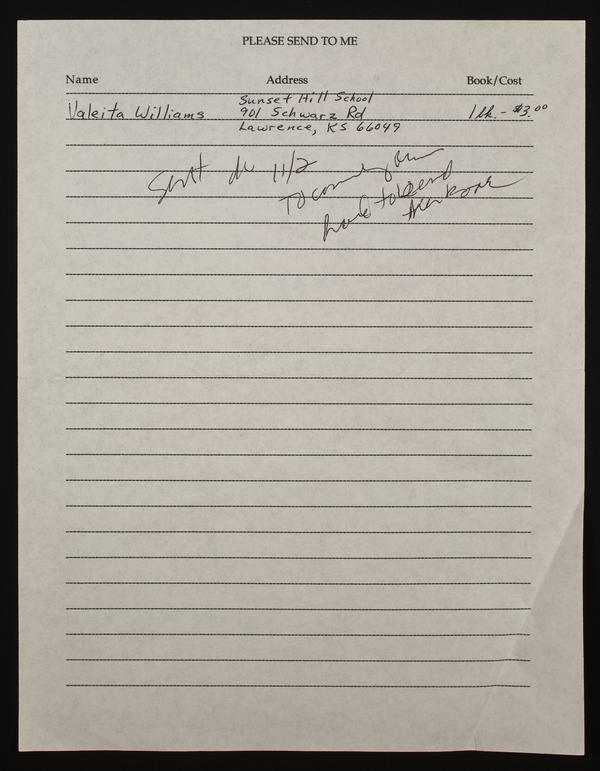 PLEASE SEND TO ME
Name Address Book/Cost
Sunset Hill School
Valeita Williams 901 Schwarz Rd 1 - $3.00
Lawrence, KS 66049
Sent 11/2
To
to send